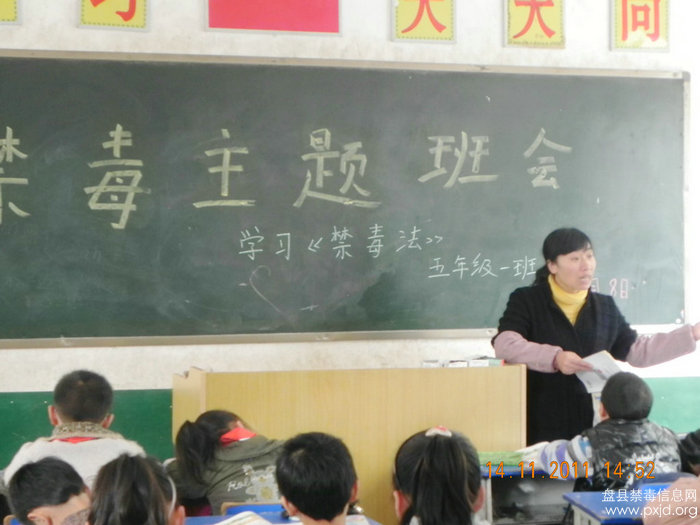 习 天天向
禁毒主题班会
学习《禁毒法》
五年级一班
14.11.2011 14:52
盘县禁毒信息网
www.pxjd.org